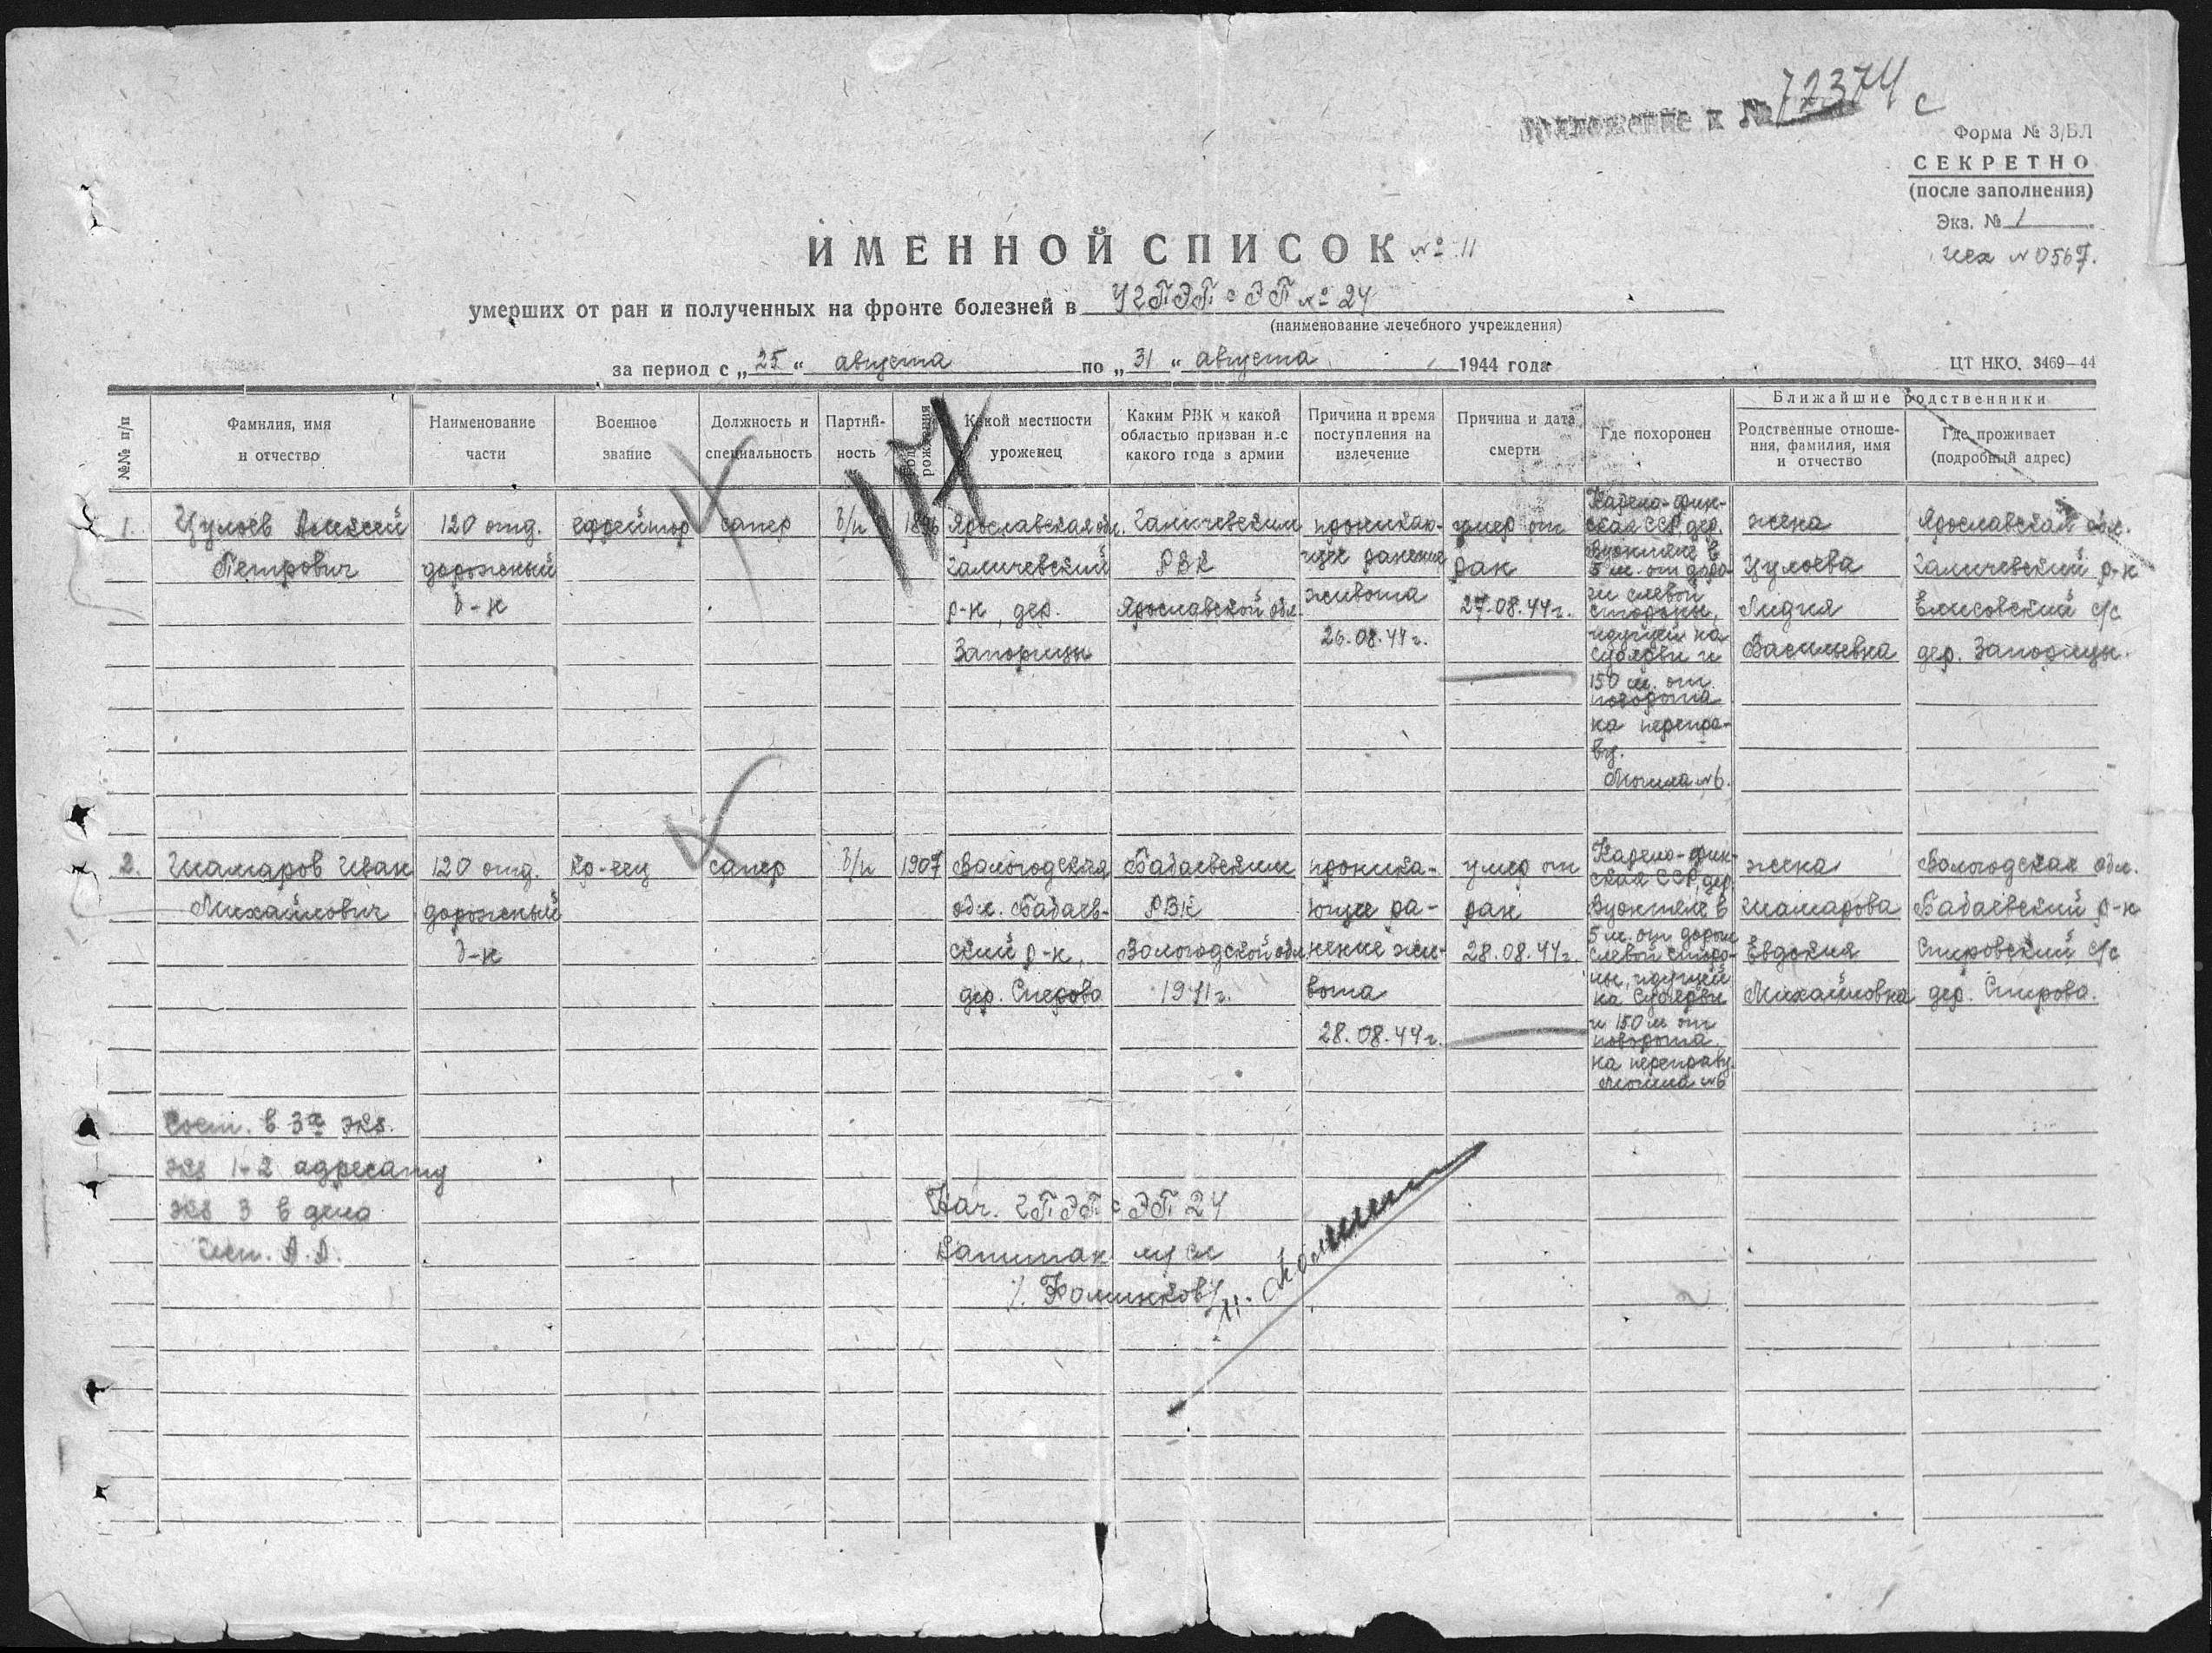 Приложение к № 72374 с
Форма № 3/БЛ
СЕКРЕТНО
(после заполнения)
Экз. № 1
исх № 0567.
ИМЕННОЙ СПИСОК № 11
умерших от ран и полученных на фронте болезней в УГПЭП с ЭП № 24
(наименование лечебного учреждения)
за период с „25“ августа по „31“ августа 1944 года
ЦТ НКО. 3469—44
№№ п/п
Фамилия, имя
и отчество
Наименование
части
Военное
звание
Должность и
специальность
Партий-
ность
Год
рождения
Какой местности
уроженец
Каким РВК и какой
областью призван и с
какого года в армии
Причина и время
поступления на
излечение
Причина и дата
смерти
Где похоронен
Ближайшие родственники
Родственные отноше-
ния, фамилия, имя
и отчество
Где проживает
(подробный адрес)
1.
Цулоев Алексей
Петрович
120 отд.
дорожный
б-н
ефрейтор
сапер
б/п
1896
Ярославская обл.
Галичевский
р-н, дер.
Запорицы
Галичевским
РВК
Ярославской обл.
проникаю-
щее ранение
живота
26.08.44г.
умер от
ран
27.08.44г.
Карело-фин-
ская ССР, дер.
в
5 м. от доро-
ги с левой
стороны,
идущей на
и
150 м. от
поворота
на перепра-
ву.
Могила №6.
жена
Цулоева
Лидия
Васильевна
Ярославская обл.
Галичевский р-н
с/с
дер. Запорицы.
2.
Шамаров Иван
Михайлович
120 отд.
дорожный
б-н
кр-еец
сапер
б/п
1907
Вологодская
обл. Бабаев-
ский р-н,
дер. Спирова
Бабаевским
РВК
Вологодской обл
1941г.
проника-
ющее ра-
нение жи-
вота
28.08.44г.
умер от
ран
28.08.44г.
Карело-фин-
ская ССР, дер.
в
5 м. от дороги
с левой сторо-
ны, идущей
на
и 150 м от
поворота
на переправу.
Могила №6
жена
Шамарова
Евдокия
Михайловна
Вологодская обл.
Бабаевский р-н
Спировский с/с
дер. Спирова.
Сост. в 3х экз.
экз 1-2 адресату
экз 3 в дело
исп. А.А.
Нач. ГПЭП с ЭП 24
Капитан м/сл
/Фоминков/